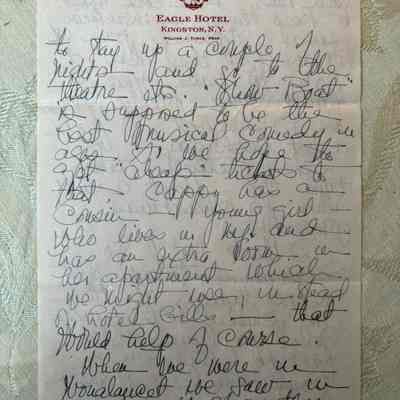 EAGLE HOTEL
KINGSTON, N.Y.
to stay up a couple of
nights and go to the
theatre etc. "Show Boat"
is supposed to be the
best musical comedy in
ages. So we hope to
get cheap tickets to
that. Cappy has a
Cousin — young girl —
who lives in N.Y. and
has an extra room in
her apartment which
we might use, instead
of hotel bills — that
would help of course.
When we were in
we saw in